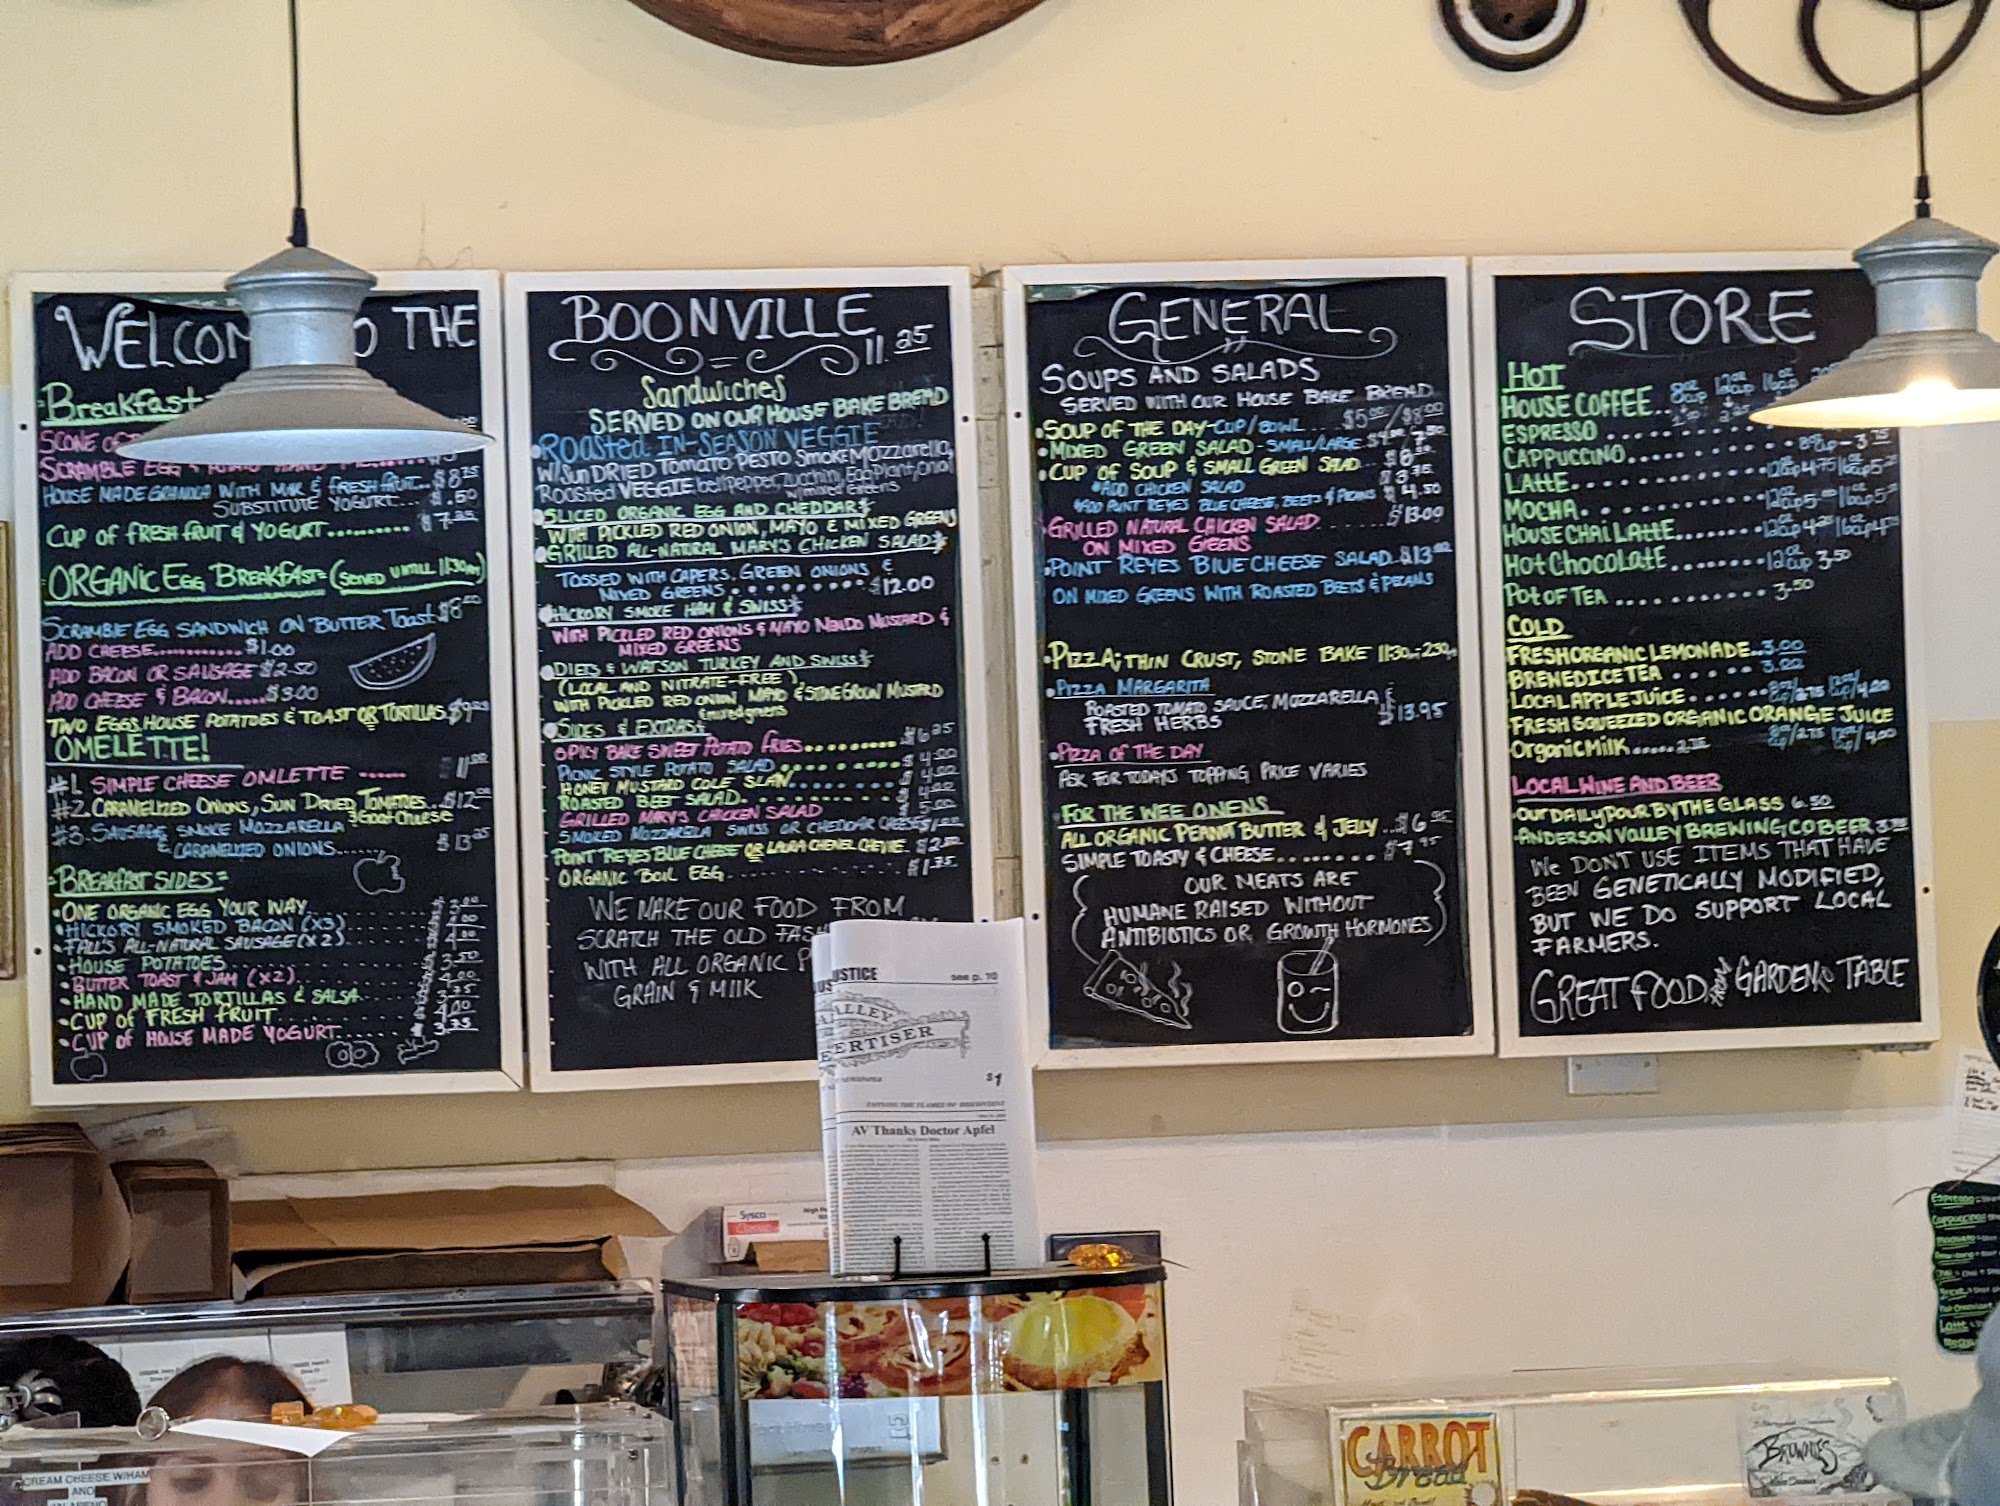 WELCOM O THE
Breakfast
SCONE OF
SCRAMBLE EGG &
HOUSE MADE GRANOLA WITH MILK & FRESH FRUIT... $8.75
SUBSTITUTE YOGURT... $.50
CUP OF FRESH FRUIT & YOGURT........... $7.25
ORGANIC EGG BREAKFAST= (SERVED UNTILL 11:30AM)
SCRAMBLE EGG SANDWICH ON BUTTER TOAST $8.00
ADD CHEESE............ $1.00
ADD BACON OR SAUSAGE $2.50
ADD CHEESE & BACON...... $3.00
TWO EGGS, HOUSE POTATOES & TOAST OR TORTILLAS
OMELETTE!
#1. SIMPLE CHEESE OMLETTE ...... $11.00
#2. CARAMELIZED ONIONS, SUN DRIED TOMATOES... $12.00
& GOAT CHEESE
#3. SAUSAGE, SMOKE MOZZARELLA
& CARAMELIZED ONIONS....... $13.25
=BREAKFAST SIDES=
•ONE ORGANIC EGG YOUR WAY 3.00
•HICKORY SMOKED BACON (X3)
•FALL'S ALL-NATURAL SAUSAGE (X2) 4.00
•HOUSE POTATOES 3.50
•BUTTER TOAST & JAM (X2)
•HAND MADE TORTILLAS & SALSA 3.75
•CUP OF FRESH FRUIT 4.00
•CUP OF HOUSE MADE YOGURT 3.75
BOONVILLE
11.25
Sandwiches
SERVED ON OUR HOUSE BAKE BREAD
•Roasted IN-SEASON VEGGIE
W/SUN DRIED TOMATO PESTO SMOKE MOZZARELLA,
Roasted VEGGIE bell pepper, zucchini, Eggplant, onion
w/mixed greens
•SLICED ORGANIC EGG AND CHEDDAR
WITH PICKLED RED ONION, MAYO & MIXED GREENS
•GRILLED ALL-NATURAL MARY'S CHICKEN SALAD
TOSSED WITH CAPERS, GREEN ONIONS &
MIXED GREENS......... $12.00
•HICKORY SMOKE HAM & SWISS
WITH PICKLED RED ONIONS & MAYO MENDO MUSTARD &
MIXED GREENS
•DIETS & WATSON TURKEY AND SWISS
(LOCAL AND NITRATE-FREE)
WITH PICKLED RED ONION MAYO & STONE GROUN MUSTARD
& mixed greens
•SIDES & EXTRAS
SPICY BAKE SWEET POTATO FRIES......... $6.25
PICNIC STYLE POTATO SALAD $4.00
HONEY MUSTARD COLE SLAW $4.00
ROASTED BEET SALAD $4.00
GRILLED MARY'S CHICKEN SALAD 5.00
SMOKED MOZZARELLA SWISS OR CHEDDAR CHEESE $1.00
POINT REYES BLUE CHEESE OR LAURA CHENEL CHEVRE $2.50
ORGANIC BOIL EGG $1.75
WE MAKE OUR FOOD FROM
SCRATCH THE OLD FAS
WITH ALL ORGANIC
GRAIN & MILK
GENERAL
SOUPS AND SALADS
SERVED WITH OUR HOUSE BAKE BREAD
•SOUP OF THE DAY-CUP/BOWL.... $5.00/$8.00
•MIXED GREEN SALAD-SMALL/LARGE
•CUP OF SOUP & SMALL GREEN SALAD
*ADD CHICKEN SALAD $3.75
*ADD POINT REYES BLUE CHEESE, BEETS & PECANS $4.50
•GRILLED NATURAL CHICKEN SALAD....... $13.00
ON MIXED GREENS
•POINT REYES BLUE CHEESE SALAD.. $13.00
ON MIXED GREENS WITH ROASTED BEETS & PECANS
•PIZZA; THIN CRUST, STONE BAKE 11:30am-2:30pm
•PIZZA MARGARITA
ROASTED TOMATO SAUCE, MOZZARELLA &
FRESH HERBS $13.95
•PIZZA OF THE DAY
ASK FOR TODAYS TOPPING PRICE VARIES
FOR THE WEE ONENS
ALL ORGANIC PEANUT BUTTER & JELLY... $6.95
SIMPLE TOASTY & CHEESE......... $7.95
OUR MEATS ARE
HUMANE RAISED WITHOUT
ANTIBIOTICS OR GROWTH HORMONES
STORE
HOT
HOUSE COFFEE.. 8oz cup 12oz cup 16oz cup
ESPRESSO
CAPPUCCINO 8oz cup - 3.75
LATTE 12oz cup 4.75 16oz cup
MOCHA 12oz cup 16oz cup
HOUSE CHAI LATTE 12oz cup 16oz cup
HOT CHOCOLATE........12oz cup 3.50
POT OF TEA........... 3.50
COLD
FRESH ORGANIC LEMONADE..3.00
BRENEDICE TEA ...... 3.00
LOCAL APPLE JUICE
FRESH SQUEEZED ORGANIC ORANGE JUICE
Organic Milk
LOCAL WINE AND BEER
•OUR DAILY POUR BY THE GLASS 6.50
•ANDERSON VALLEY BREWING CO BEER
WE DONT USE ITEMS THAT HAVE
BEEN GENETICALLY MODIFIED,
BUT WE DO SUPPORT LOCAL
FARMERS.
GREAT FOOD, from GARDEN to TABLE
USTICE see p. 10
ALLEY
ERTISER
NEWSPAPER $1
FANNING THE FLAMES OF DISCONTENT
AV Thanks Doctor Apfel
Sysco
Classic
Espresso
Cappuccino
Latte
CREAM CHEESE W/HAM
AND
CARROT
Bread
BROWNIES